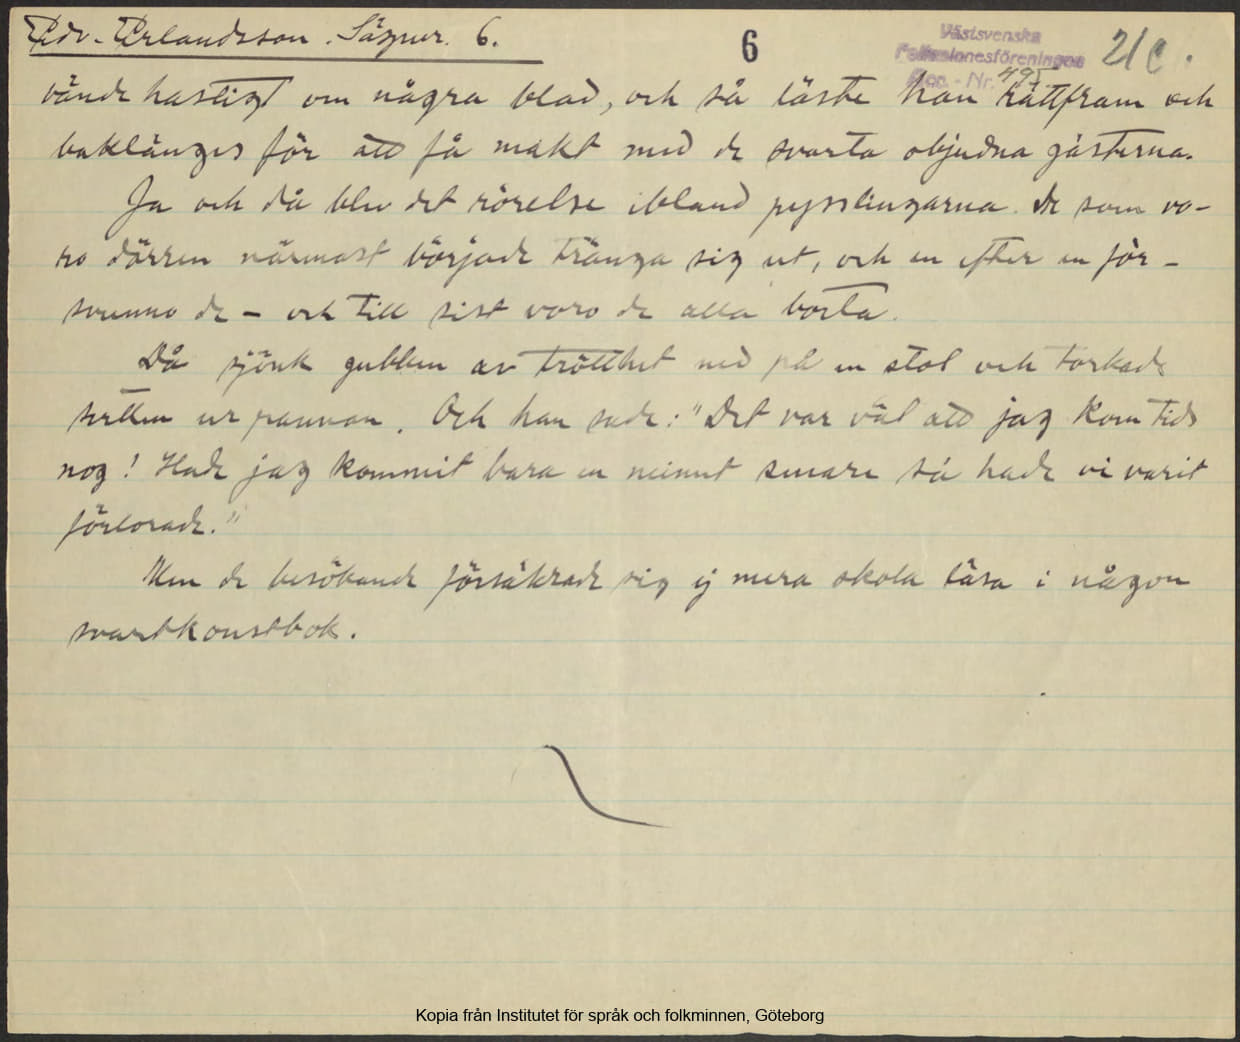 Edv. Erlandsson. Sägner. 6.
6
Västsvenska
Folkminnesföreningen
Acc. - Nr. 495
21C.
vände hastigt om några blad, och så läste han rättfram och
baklänges för att få makt med de svarta objudna gästerna.
Ja och då blev det rörelse ibland pysslingarna. De som vo-
ro dörren närmast började tränga sig ut, och en efter en för-
svunno de - och till sist voro de alla borta.
Då sjönk gubben av trötthet ned på en stol och torkade
svetten ur pannan. Och han sade: "Det var väl att jag kom tids
nog! Hade jag kommit bara en minut senare så hade vi varit
förlorade."
Men de besökande försäkrade sig ej mera skola läsa i någon
svartkonstbok.
Kopia från Institutet för språk och folkminnen, Göteborg